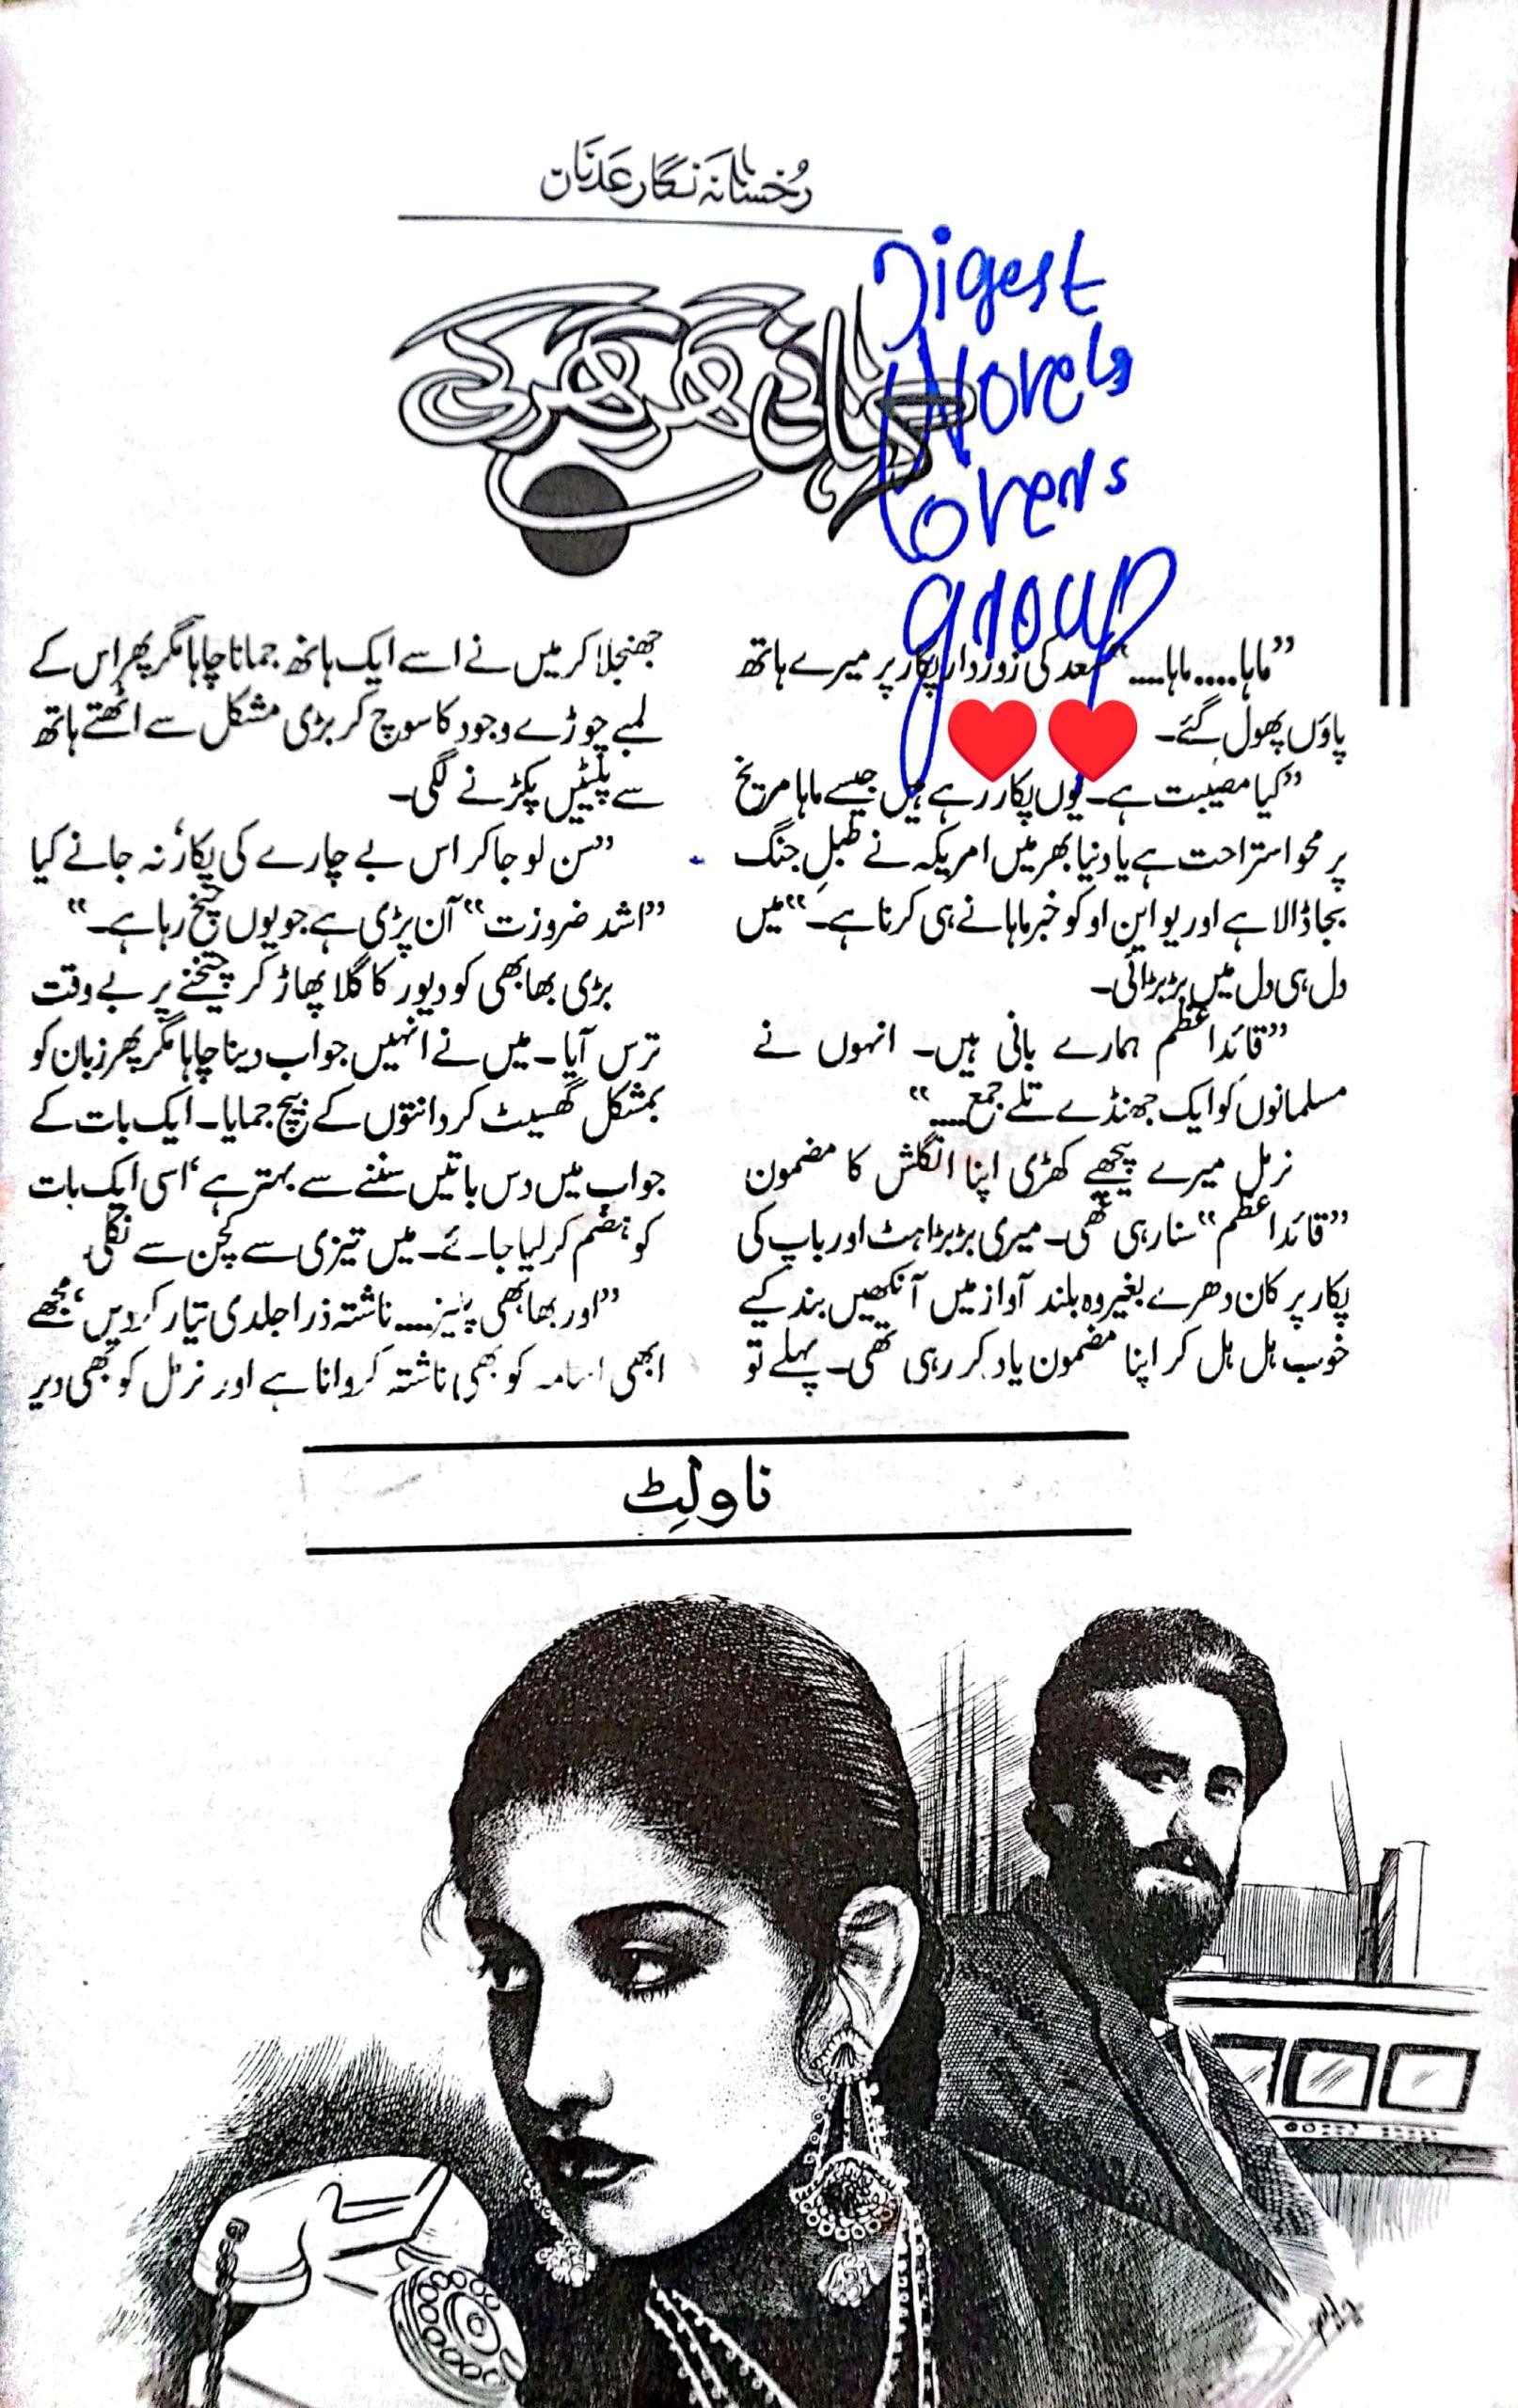 رُخسانہ نگار عدنان
کہانی گھر گھر کی
Digest
Novels
Lovers
group
”ماہا....ماہا....“ سعد کی زوردار پکار پر میرے ہاتھ
پاؤں پھول گئے۔
”کیا مصیبت ہے۔ یوں پکار رہے ہیں جیسے ماہا مریخ
پر محو استراحت ہے یا دنیا بھر میں امریکہ نے طبلِ جنگ
بجا ڈالا ہے اور یو این او کو خبر ماہا نے ہی کرنا ہے۔“ میں
دل ہی دل میں بڑبڑائی۔
”قائداعظم ہمارے بانی ہیں۔ انہوں نے
مسلمانوں کو ایک جھنڈے تلے جمع....“
نرمل میرے پیچھے کھڑی اپنا انگلش کا مضمون
”قائداعظم“ سنا رہی تھی۔ میری بڑبڑاہٹ اور باپ کی
پکار پر کان دھرے بغیر وہ بلند آواز میں آنکھیں بند کیے
خوب ہل ہل کر اپنا مضمون یاد کر رہی تھی۔ پہلے تو
جھنجلا کر میں نے اسے ایک ہاتھ جمانا چاہا مگر پھر اس کے
لمبے چوڑے وجود کا سوچ کر بڑی مشکل سے اٹھتے ہاتھ
سے پلیٹیں پکڑنے لگی۔
”سن لو جا کر اس بے چارے کی پکار‘ نہ جانے کیا
”اشد ضرورت“ آن پڑی ہے جو یوں چیخ رہا ہے۔“
بڑی بھابھی کو دیور کا گلا پھاڑ کر چیخنے پر بے وقت
ترس آیا۔ میں نے انہیں جواب دینا چاہا مگر پھر زبان کو
بمشکل گھسیٹ کر دانتوں کے بیچ جمایا۔ ایک بات کے
جواب میں دس باتیں سننے سے بہتر ہے‘ اسی ایک بات
کو ہضم کر لیا جائے۔ میں تیزی سے کچن سے نکلی۔
”اور بھابھی پلیز.... ناشتہ ذرا جلدی تیار کر دیں‘ مجھے
ابھی اسامہ کو بھی ناشتہ کروانا ہے اور نرمل کو بھی دیر
ناولِٹ